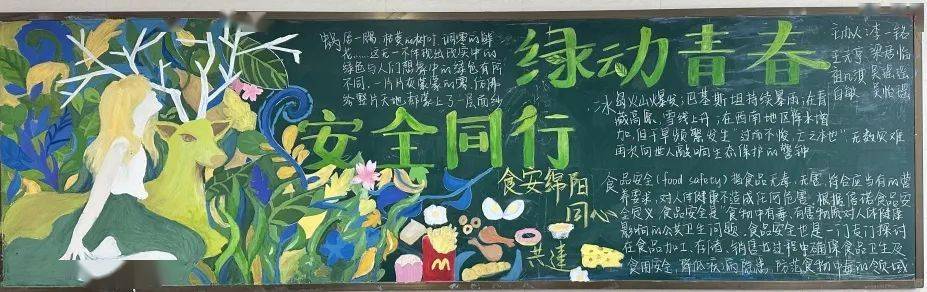 绿动青春
安全同行
花……这无一不体现出现实中的
绿色与人们想象中的绿色有所
不同,一片片灰蒙蒙的雾,仿佛
给整片天地都蒙上了一层面纱
冰岛火山爆发;巴基斯坦持续暴雨;在青
藏高原,雪线上升;在西南地区降水增
加,但干旱频繁发生“过而不悛,亡之本也”无数灾难
再次向世人敲响生态保护的警钟
食品安全(food safety)指食品无毒、无害,符合应当有的营
养要求,对人体健康不造成任何危害。根据倍诺食品安
全定义,食品安全是“食物中有毒、有害物质对人体健康
影响的公共卫生问题。食品安全也是一门专门探讨
在食品加工、存储、销售等过程中确保食品卫生及
食用安全,降低疾病隐患,防范食物中毒的领域
食安绵阳
同心
共建
M